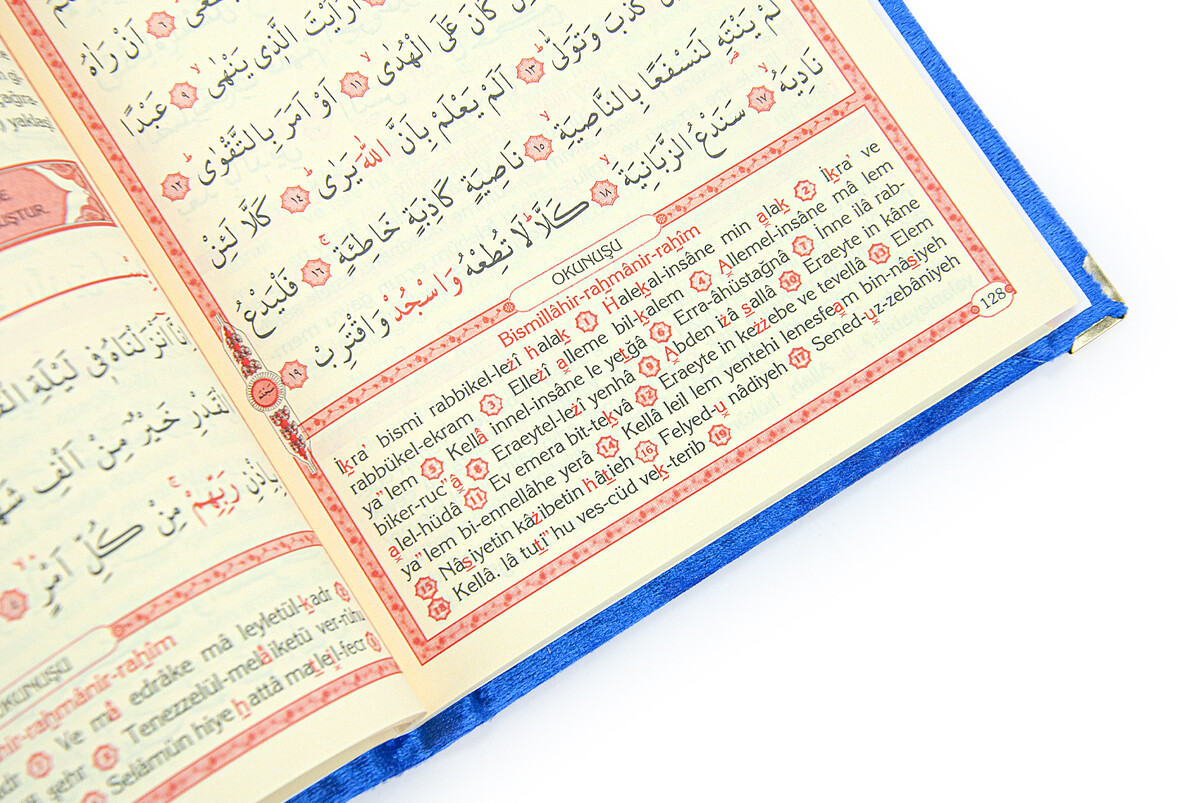 اَنْ رَاٰهُ
اَرَاَيْتَ الَّذ۪ي يَنْهٰىۙ ٩ عَبْدًا
كَانَ عَلَى الْهُدٰىۙ ١١ اَوْ اَمَرَ بِالتَّقْوٰىۜ ١٢
كَذَّبَ وَتَوَلّٰىۜ ١٣ اَلَمْ يَعْلَمْ بِاَنَّ اللّٰهَ يَرٰىۜ ١٤ كَلَّا لَئِنْ
لَمْ يَنْتَهِ لَنَسْفَعًا بِالنَّاصِيَةِۙ ١٥ نَاصِيَةٍ كَاذِبَةٍ خَاطِئَةٍۚ ١٦ فَلْيَدْعُ
نَادِيَهُۙ ١٧ سَنَدْعُ الزَّبَانِيَةَۙ ١٨ كَلَّاۜ لَا تُطِعْهُ وَاسْجُدْ وَاقْتَرِبْ ١٩
OKUNUŞU
Bismillâhir-rahmânir-rahîm
İkra' bismi rabbikel-lezî halak 1 Halekal-insâne min alak 2 İkra' ve
rabbükel-ekram 3 Ellezî alleme bil-kalem 4 Allemel-insâne mâ lem
ya"lem 5 Kellâ innel-insâne le yetgâ 6 Erra-âhüstağnâ 7 İnne ilâ rab-
biker-ruc"â 8 Eraeytel-lezî yenhâ 9 Abden izâ sallâ 10 Eraeyte in kâne
alel-hüdâ 11 Ev emera bit-tekvâ 12 Eraeyte in kezzebe ve tevellâ 13 Elem
ya"lem bi-ennellâhe yerâ 14 Kellâ leil lem yentehi lenesfeam bin-nâsiyeh
15 Nâsiyetin kâzibetin hâtieh 16 Felyed-u nâdiyeh 17 Sened-uz-zebâniyeh
18 Kellâ. lâ tuti"hu ves-cüd vek-terib 19
128
اَنْزَلْنَاهُ ف۪ي لَيْلَةِ
الْقَدْرِ خَيْرٌ مِنْ اَلْفِ
بِاِذْنِ رَبِّهِمْۚ مِنْ كُلِّ اَمْرٍۙ ٤
OKUNUŞU
rahmânir-rahîm
1 Ve mâ edrâke mâ leyletül-kadr 2
şehr 3 Tenezzelül-melâiketü ver-rûhu
Selâmün hiye hattâ matleıl-fecr 5